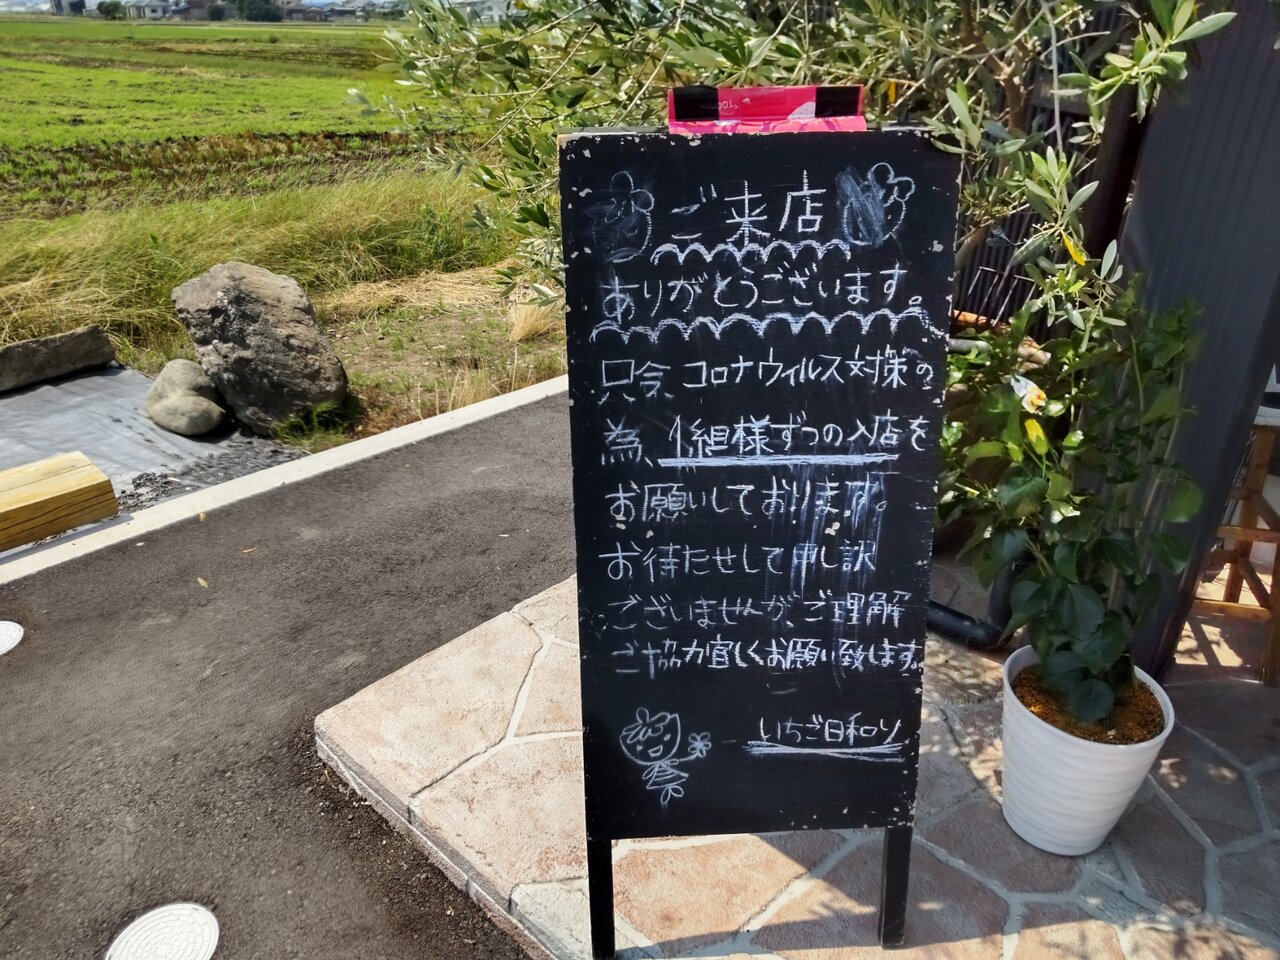 ご来店
ありがとうございます。
只今コロナウィルス対策の
為、1組様ずつの入店を
お願いしております。
お待たせして申し訳
ございませんが、ご理解
ご協力宜しくお願い致します。
いちご日和り